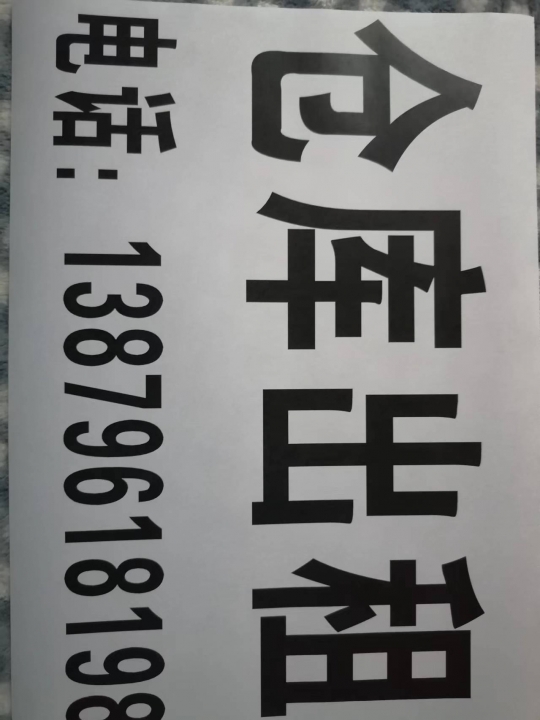 仓库出租
电话：13879618198